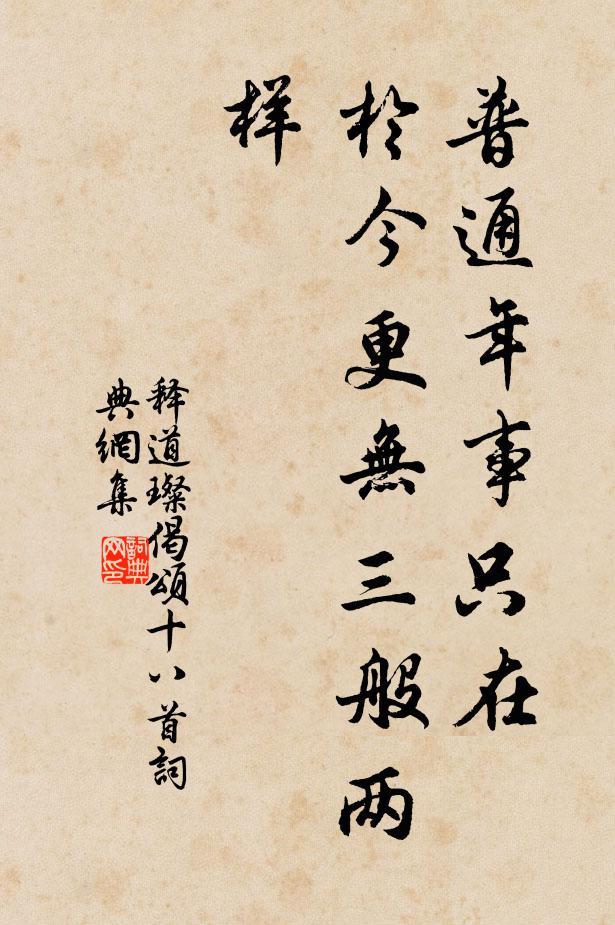 普通年事只在
於今更無三般两
样
释道璨偈頌十八首詞
典網集
詞典
网印